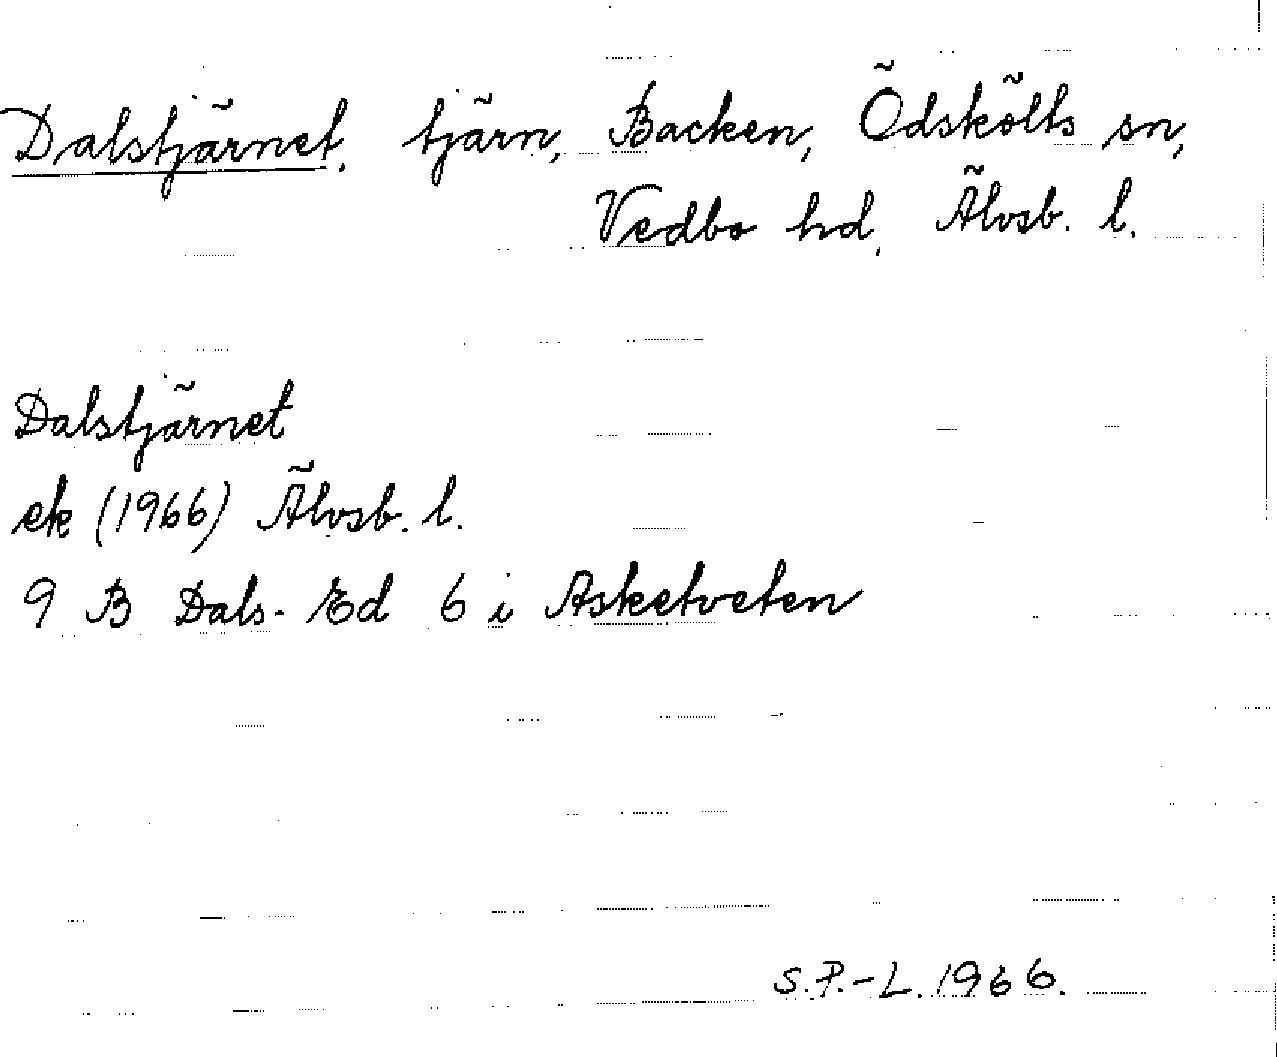 Dalstjärnet, tjärn, Backen, Ödskölts sn,
Vedbo hd, Älvsb. l.
Dalstjärnet
ek (1966) Älvsb. l.
9 B Dals-Ed 6 i Asketveten
S.P.-L. 1966.